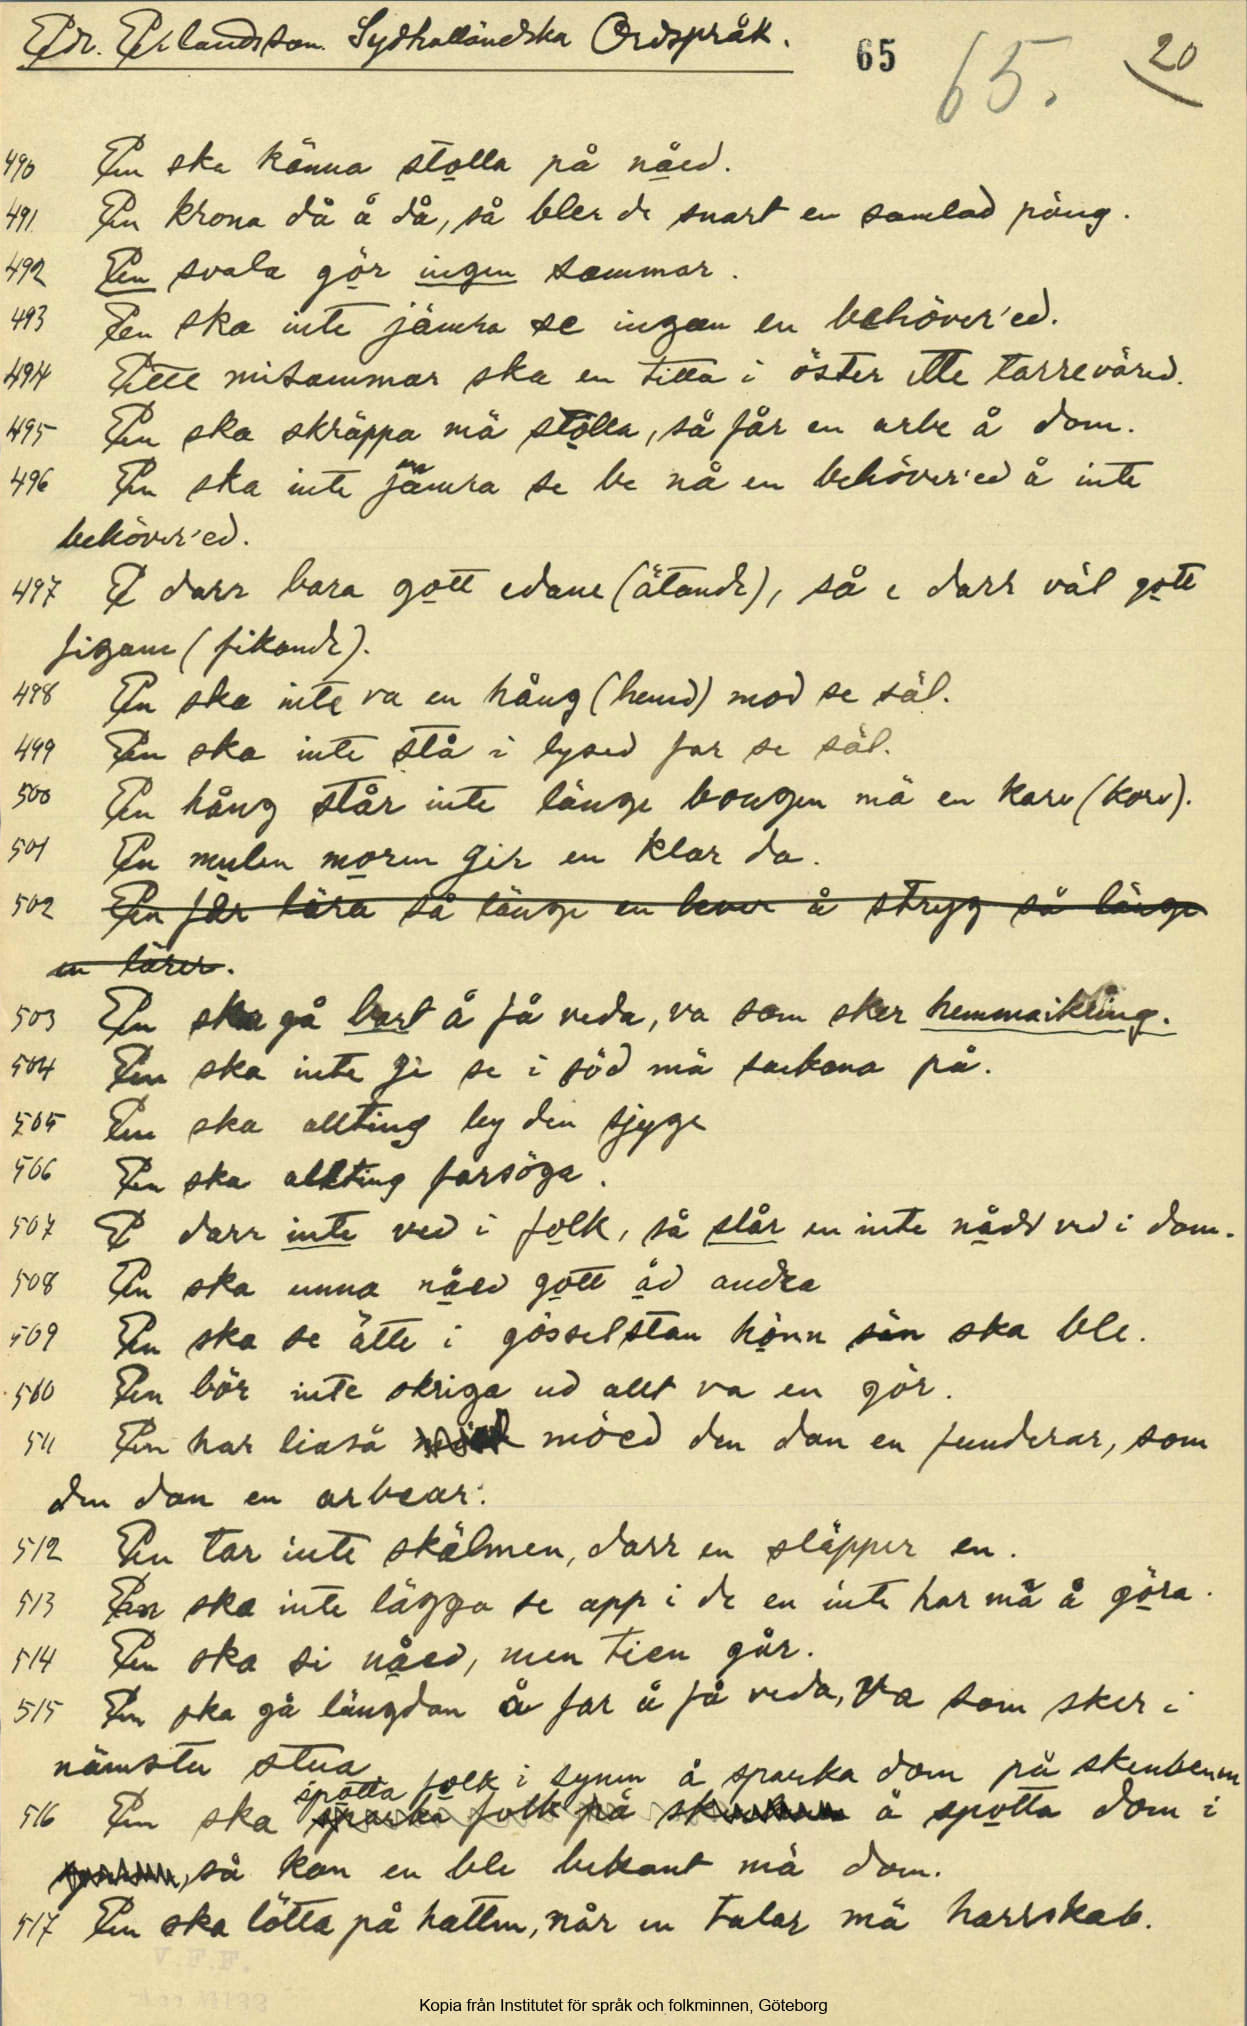 Edv. Erlandsson. Sydhalländska Ordspråk. 65 65. 20
490 En ska känna stolla på nåed.
491 En krona då å då, så bler de snart en samlad päng.
492 En svala gör ingen sommar.
493 En ska inte jämra se ingan en behöver'ed.
494 Ette misammar ska en titta i öster ette tarrevared.
495 En ska skräppa mä stolla, så får en arbe å dom.
496 En ska inte jämra se be nå en behöver'ed å inte
behöver'ed.
497 E darr bara gott edane (ätande), så e darr väl gott
figane (fikande).
498 En ska inte va en hång (hund) mod se säl.
499 En ska inte stå i lysed far se säl.
500 En hång står inte länge bongen mä en karv (korv).
501 En mulen moren gir en klar da.
502 En får lära så länge en lever å stryg så länge
en lärer.
503 En ska gå bart å få veda, va som sker hemmaikring.
504 En ska inte gi se i söd mä sockana på.
505 En ska allting ly den sjyge
506 En ska allting farsöga.
507 E darr inte ved i folk, så slår en inte nådd ved i dom.
508 En ska unna nåed gott åd andra
509 En ska se ätte i gösselstan hånn sin ska ble.
510 En bör inte skriga ud allt va en gör.
511 En har liaså möed den dan en funderar, som
den dan en arbear.
512 En tar inte skälmen, darr en släpper en.
513 En ska inte lägga se app i de en inte har mä å göra.
514 En ska si nåed, men tien går.
515 En ska gå längdan å far å få veda, va som sker i
nämsta stua.
spotta folk i synen å sparka dom på skenbenen
516 En ska sparka folk på å spotta dom i
så kan en ble bekant mä dom.
517 En ska lötta på hatten, når en talar mä harrskab.
V.F.F.
Kopia från Institutet för språk och folkminnen, Göteborg